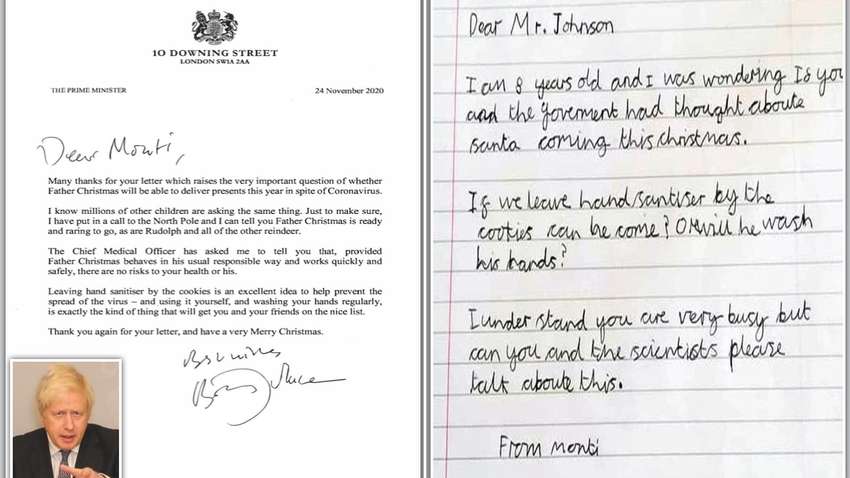 10 DOWNING STREET
LONDON SW1A 2AA
THE PRIME MINISTER
24 November 2020
Dear Monti,
Many thanks for your letter which raises the very important question of whether
Father Christmas will be able to deliver presents this year in spite of Coronavirus.
I know millions of other children are asking the same thing. Just to make sure,
I have put in a call to the North Pole and I can tell you Father Christmas is ready
and raring to go, as are Rudolph and all of the other reindeer.
The Chief Medical Officer has asked me to tell you that, provided
Father Christmas behaves in his usual responsible way and works quickly and
safely, there are no risks to your health or his.
Leaving hand sanitiser by the cookies is an excellent idea to help prevent the
spread of the virus – and using it yourself, and washing your hands regularly,
is exactly the kind of thing that will get you and your friends on the nice list.
Thank you again for your letter, and have a very Merry Christmas.
Best wishes
Dear Mr. Johnson
I am 8 years old and I was wondering If you
and the goverment had thought aboute
santa coming this christmas.
If we leave hand santiser by the
cookies can he come? OR will he wash
his hands?
I under stand you are very busy but
can you and the scientists please
talk aboute this.
From monti